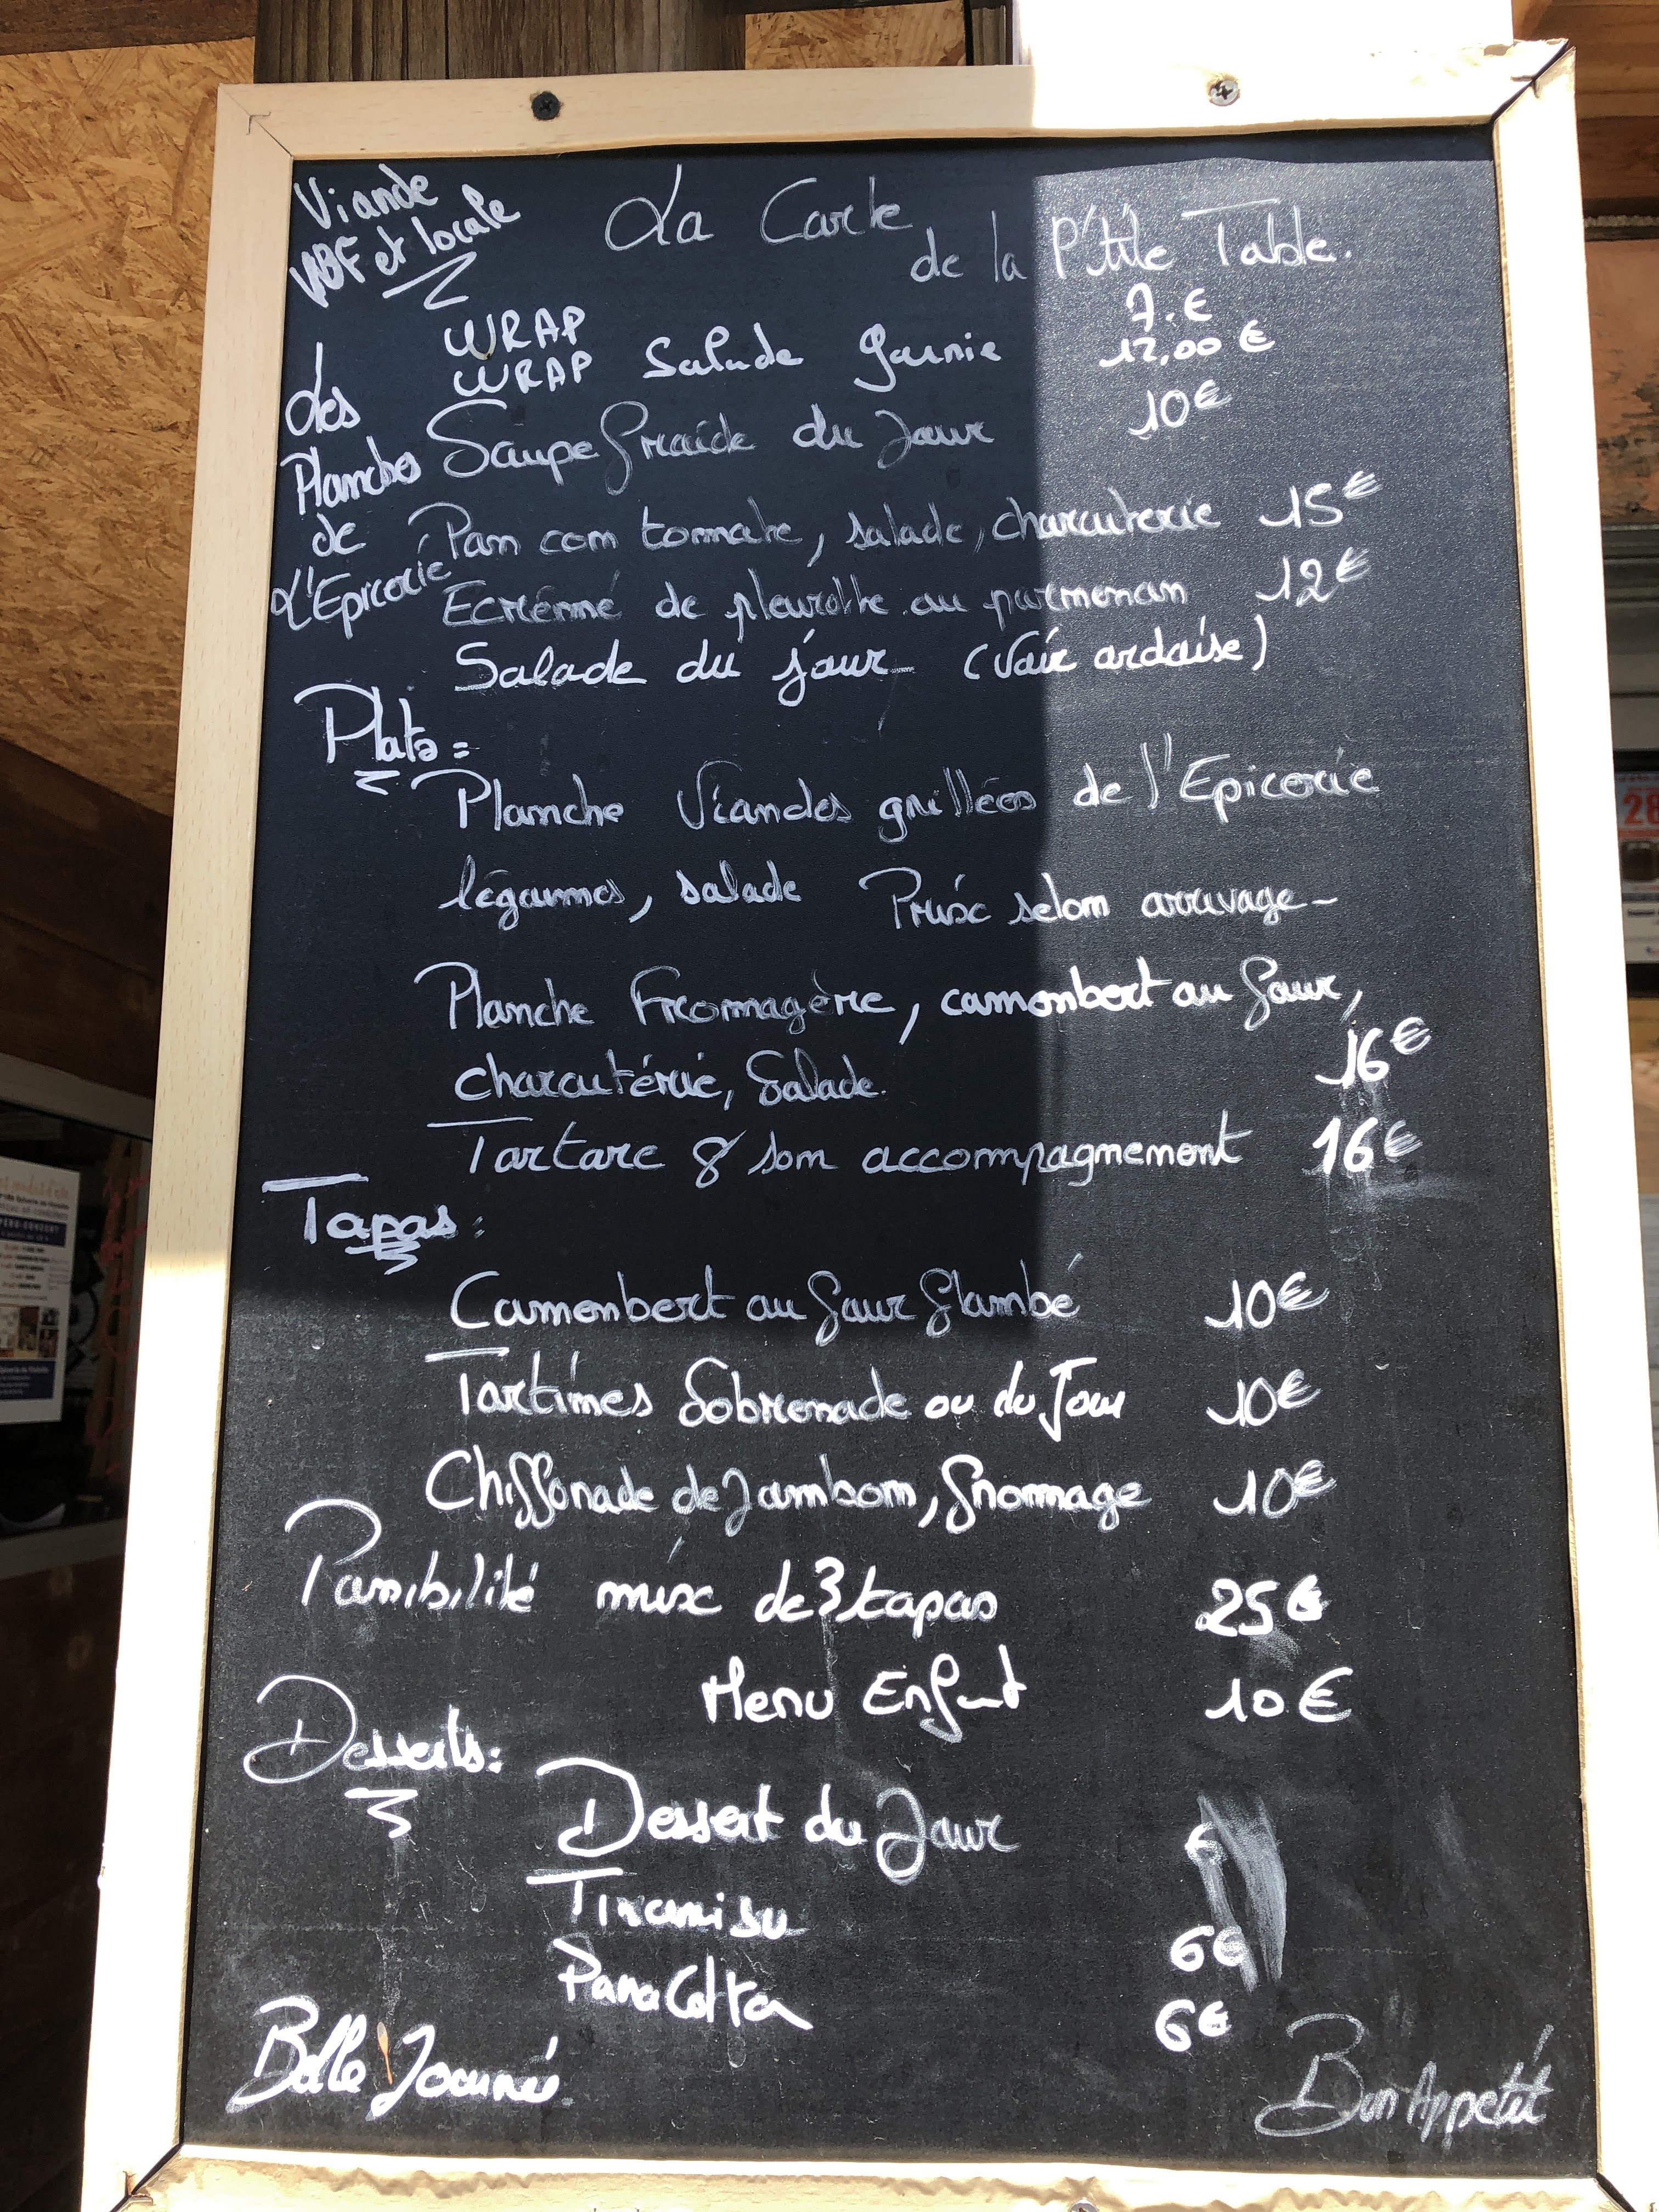 Viande
VBF et locale
La Carte
de la P'tite Table.
WRAP 7.€
WRAP Salade garnie 12,00 €
Les
Planches
de
L'Epicerie
Soupe froide du Jour 10€
Pan con tomate, salade, charcuterie 15€
Ecrémé de pleurotte au parmesan 12€
Salade du jour (Voir ardoise)
Plats:
Planche Viandes grillées de l'Epicerie
légumes, salade Prix selon arrivage-
Planche Fromagère, camembert au four,
charcutérie, Salade. 16€
Tartare & son accompagnement 16€
Tapas:
Camembert au four flambé 10€
Tartines Sobrenade ou du Jour 10€
Chiffonade de Jambon, fromage 10€
Possibilité mix de 3 tapas 25€
Menu Enfant 10€
Desserts:
Dessert du Jour €
Tiramisu 6€
PanaCotta 6€
Belle Journée.
Bon Appétit